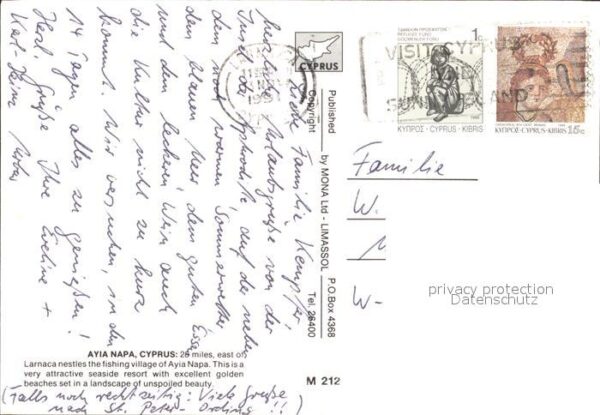 Liebe Familie Kempfer,
herzliche Urlaubsgrüße von der
Insel der Aphrodite, auf der neben
dem noch warmen Sommerwetter,
dem blauen Meer, dem guten Essen
und dem leckeren Wein auch
die Kultur nicht zu kurz
kommt. Wir versuchen, in den
14 Tagen alles zu genießen!
Herzl. Grüße Ihre Eveline +
Karl-Heinz
CYPRUS
Published by MONA Ltd - LIMASSOL P.O.Box 4368
Copyright Tel. 26400
1c
VISIT CYPRUS
SUN ISLAND
1991
ΚΥΠΡΟΣ·CYPRUS·KIBRIS
ΚΥΠΡΟΣ·CYPRUS·KIBRIS 15c
Familie
W.
W-
privacy protection
Datenschutz
AYIA NAPA, CYPRUS: 25 miles, east of
Larnaca nestles the fishing village of Ayia Napa. This is a
very attractive seaside resort with excellent golden
beaches set in a landscape of unspoiled beauty.
M 212
(Falls noch rechtzeitig: Viele Grüße
nach St. Peter-Ording!!)